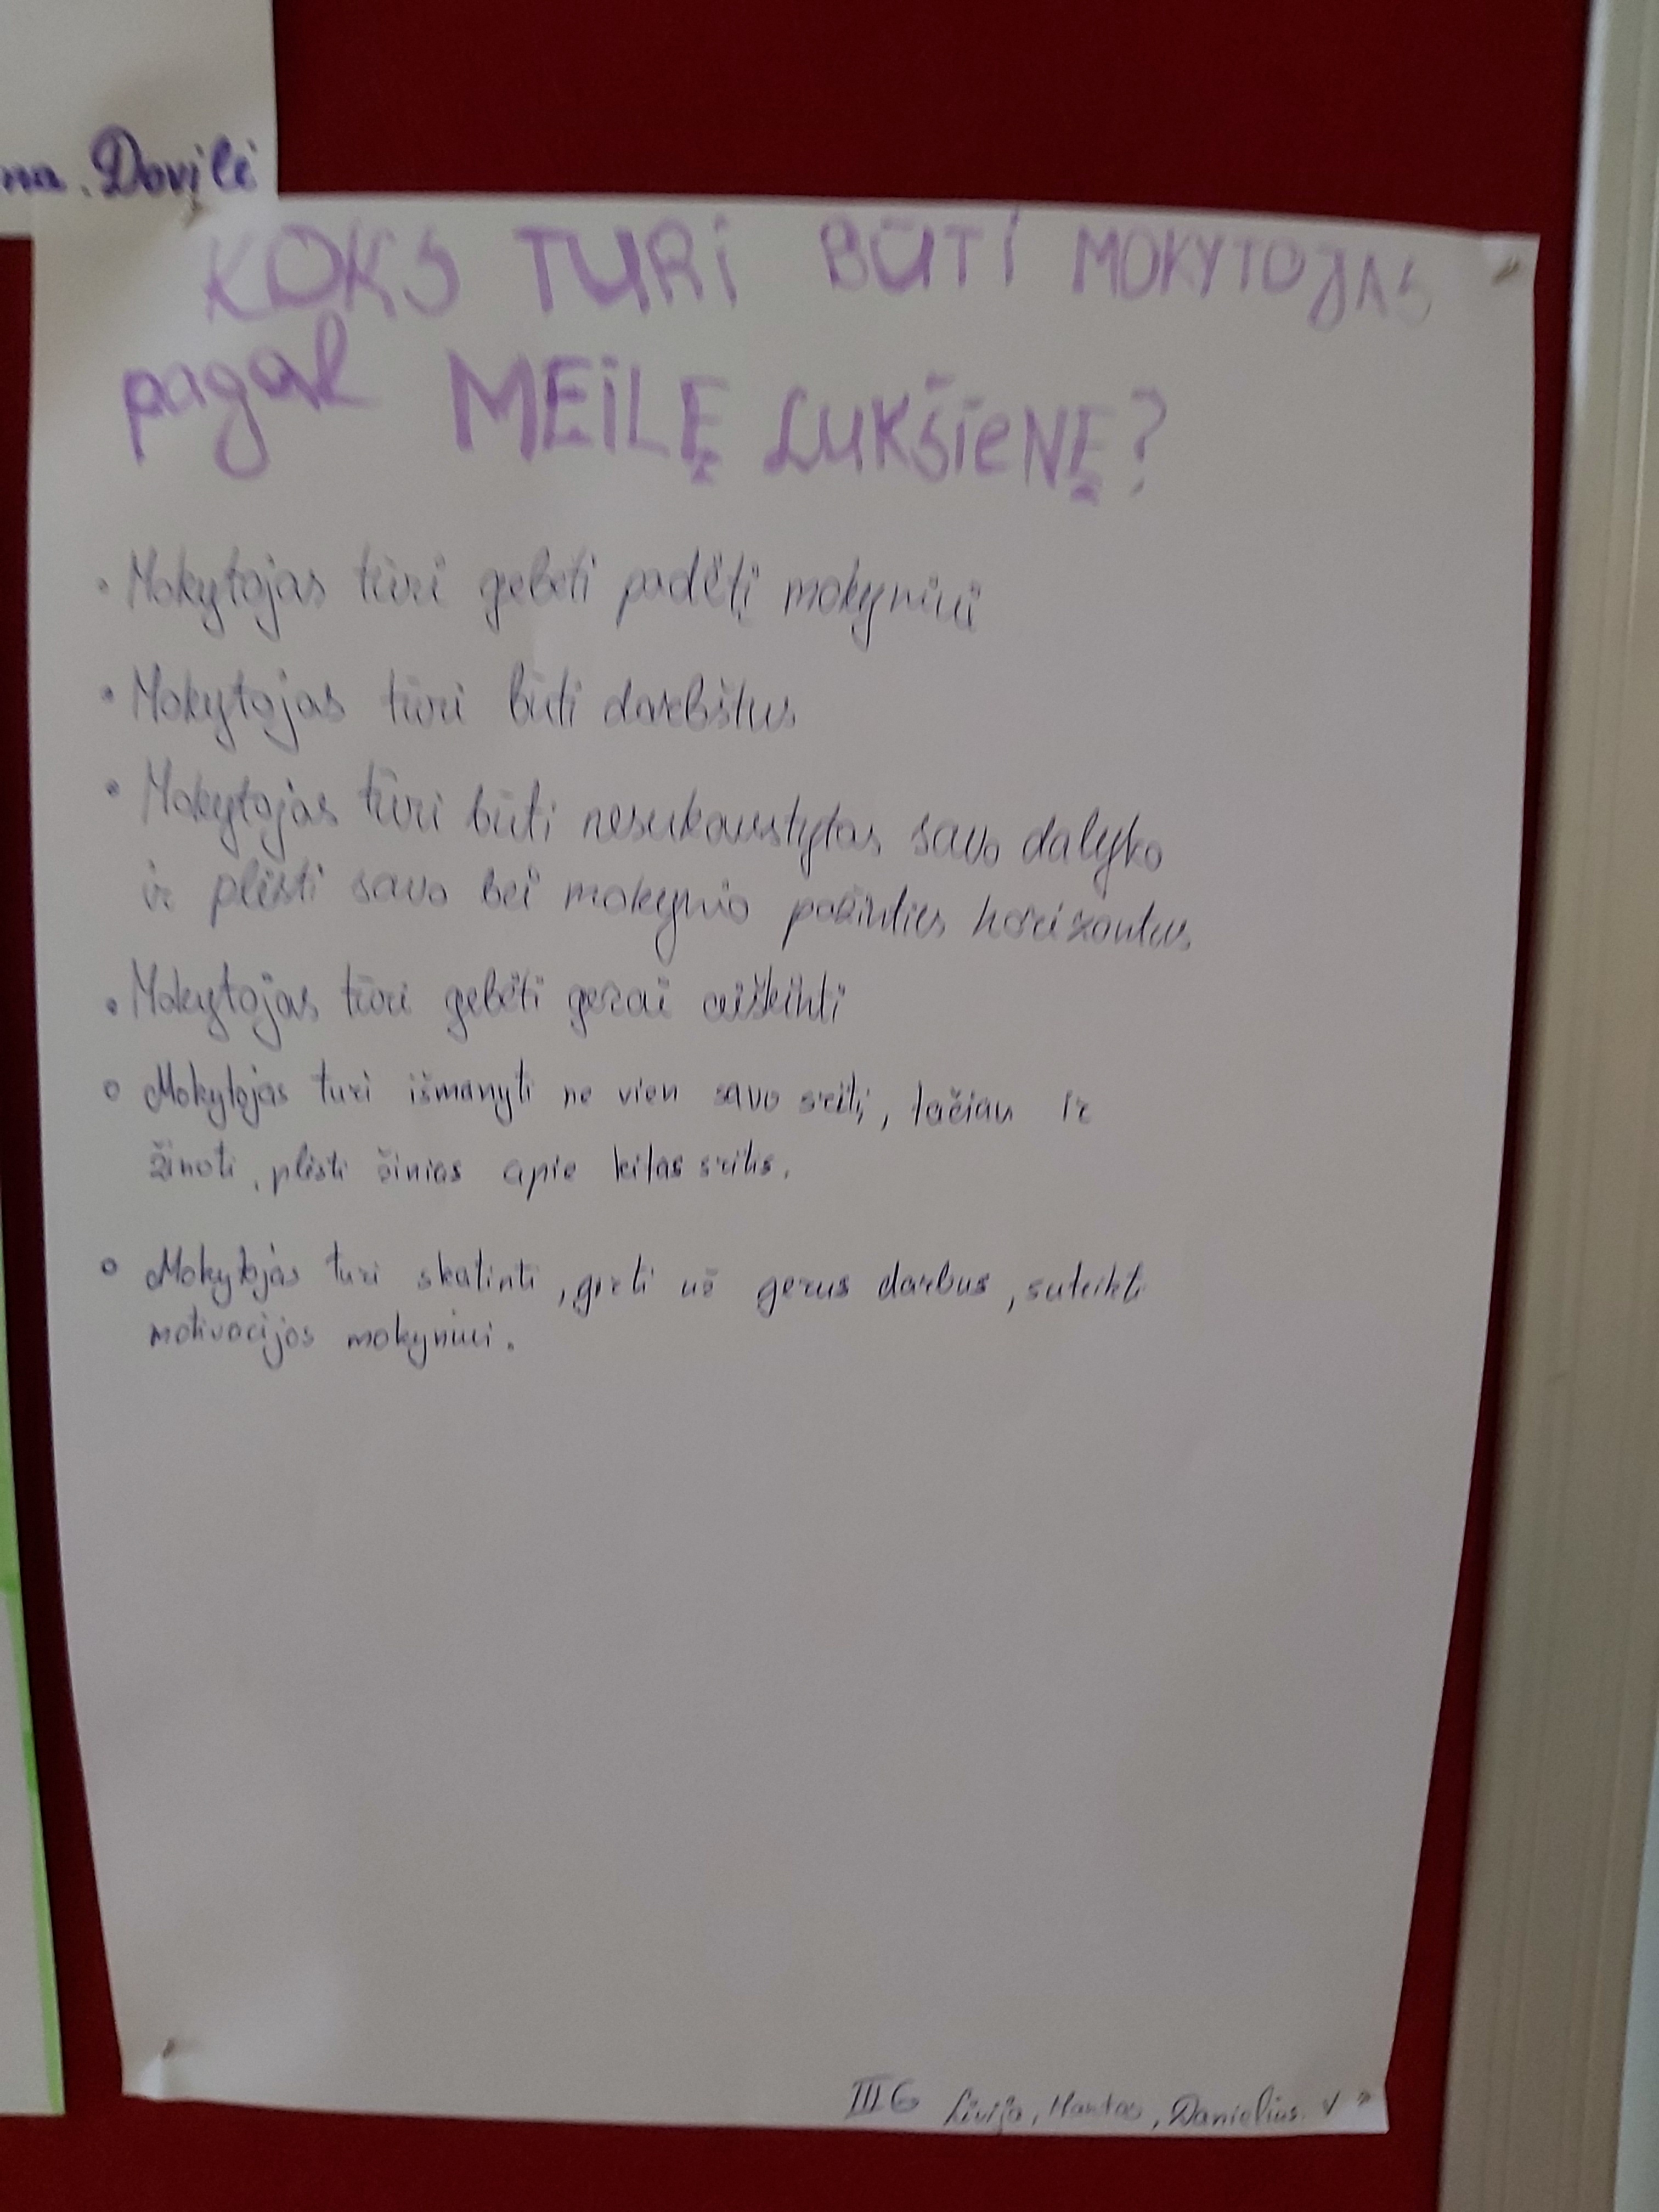 na. Dovilė
KOKS TURI BŪTI MOKYTOJAS
pagal MEILĘ LUKŠIENĘ?
• Mokytojas turi gebėti padėti mokyniui
• Mokytojas turi būti darbštus
• Mokytojas turi būti nesukaustytas savo dalyko
ir plėsti savo bei mokynio pažinties horizontus
• Mokytojas turi gebėti gerai aiškinti
• Mokytojas turi išmanyti ne vien savo sritį, tačiau ir
žinoti, plėsti žinias apie kitas sritis.
• Mokytojas turi skatinti, girti už gerus darbus, suteikti
motivacijos mokyniui.
III G Livija, Mantas, Danielius V